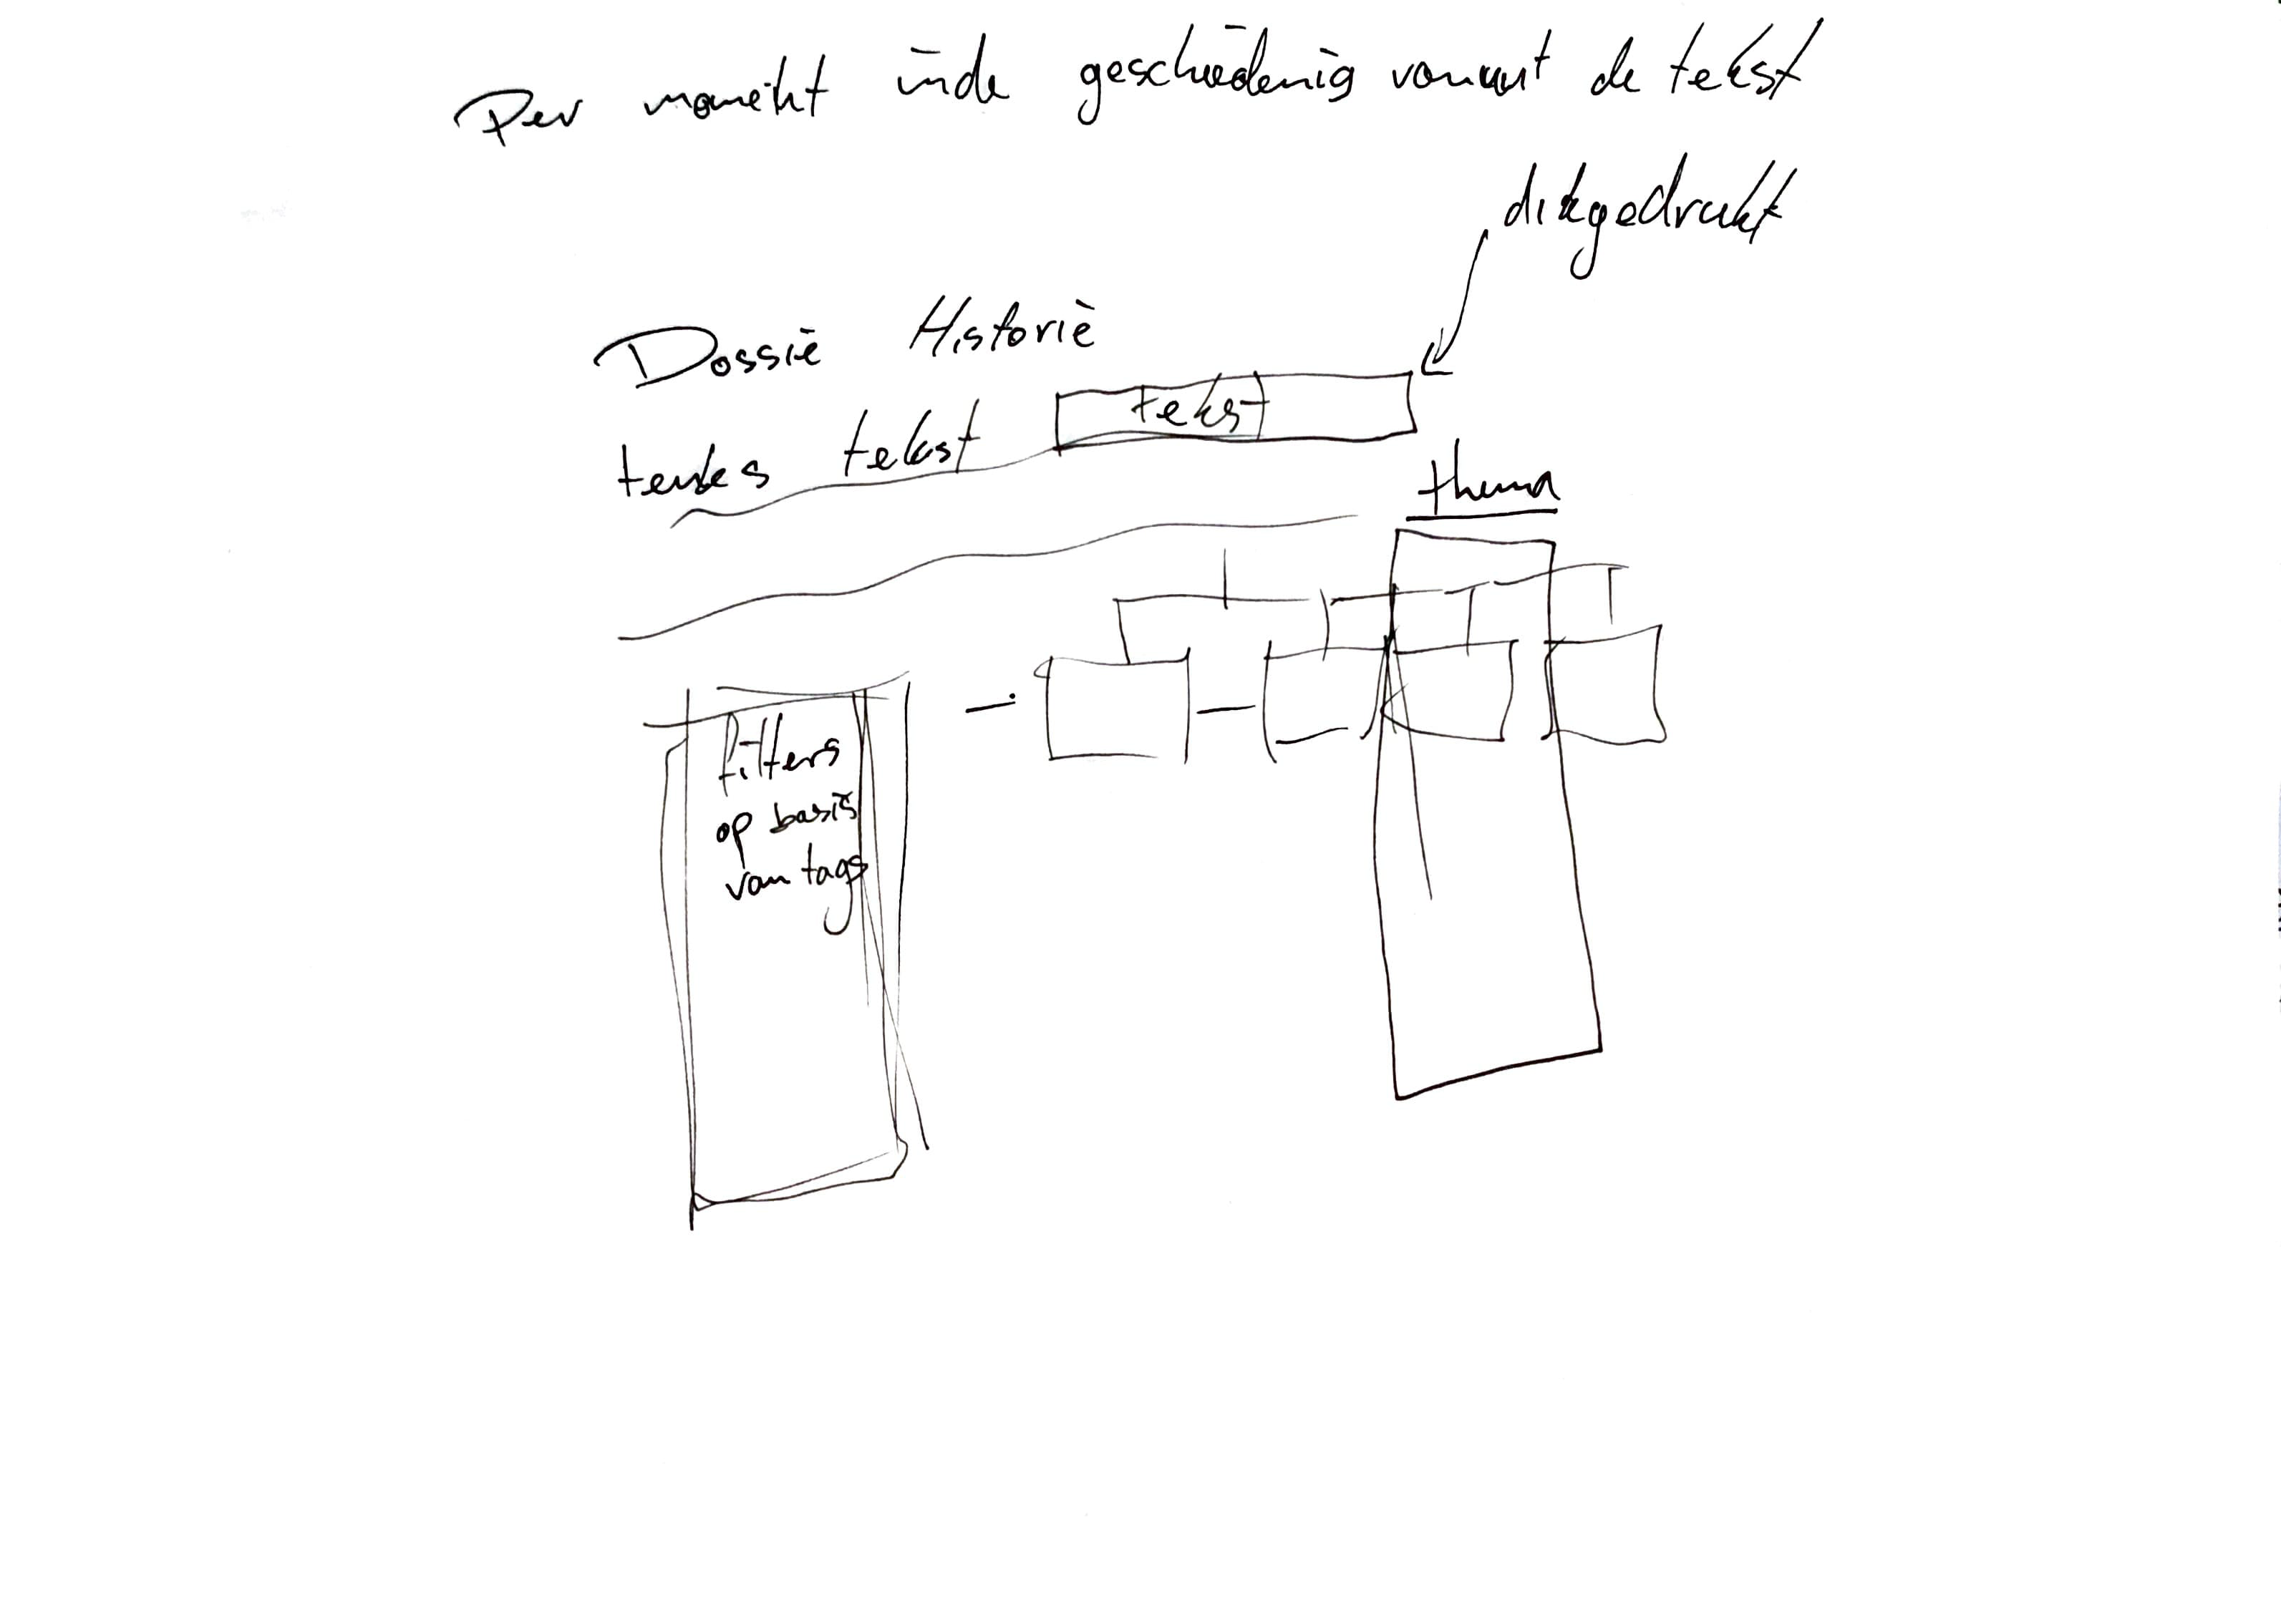 Per moment in de geschiedenis vanuit de tekst
dikgedrukt
Dossie Historie
tekst tekst
thema
filters
op basis
van tags